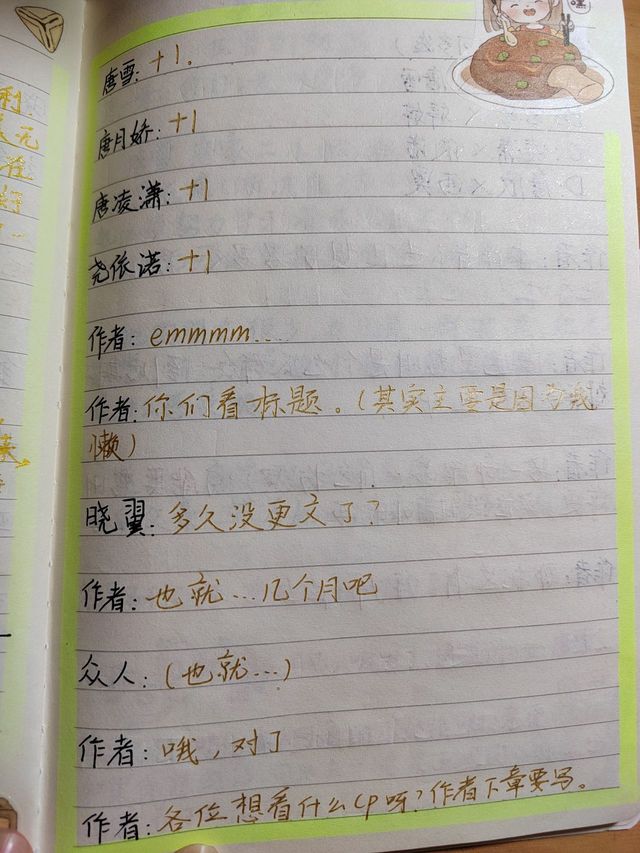 利
元
准
好
来
唐雪：+1。
唐月娇：+1
唐凌潇：+1
尧依诺：+1
作者：emmmm...
作者：你们看标题。(其实主要是因为我
懒)
晓翼：多久没更文了？
作者：也就...几个月吧
众人：(也就...)
作者：哦，对了
作者：各位想看什么cp呀？作者下章要写。